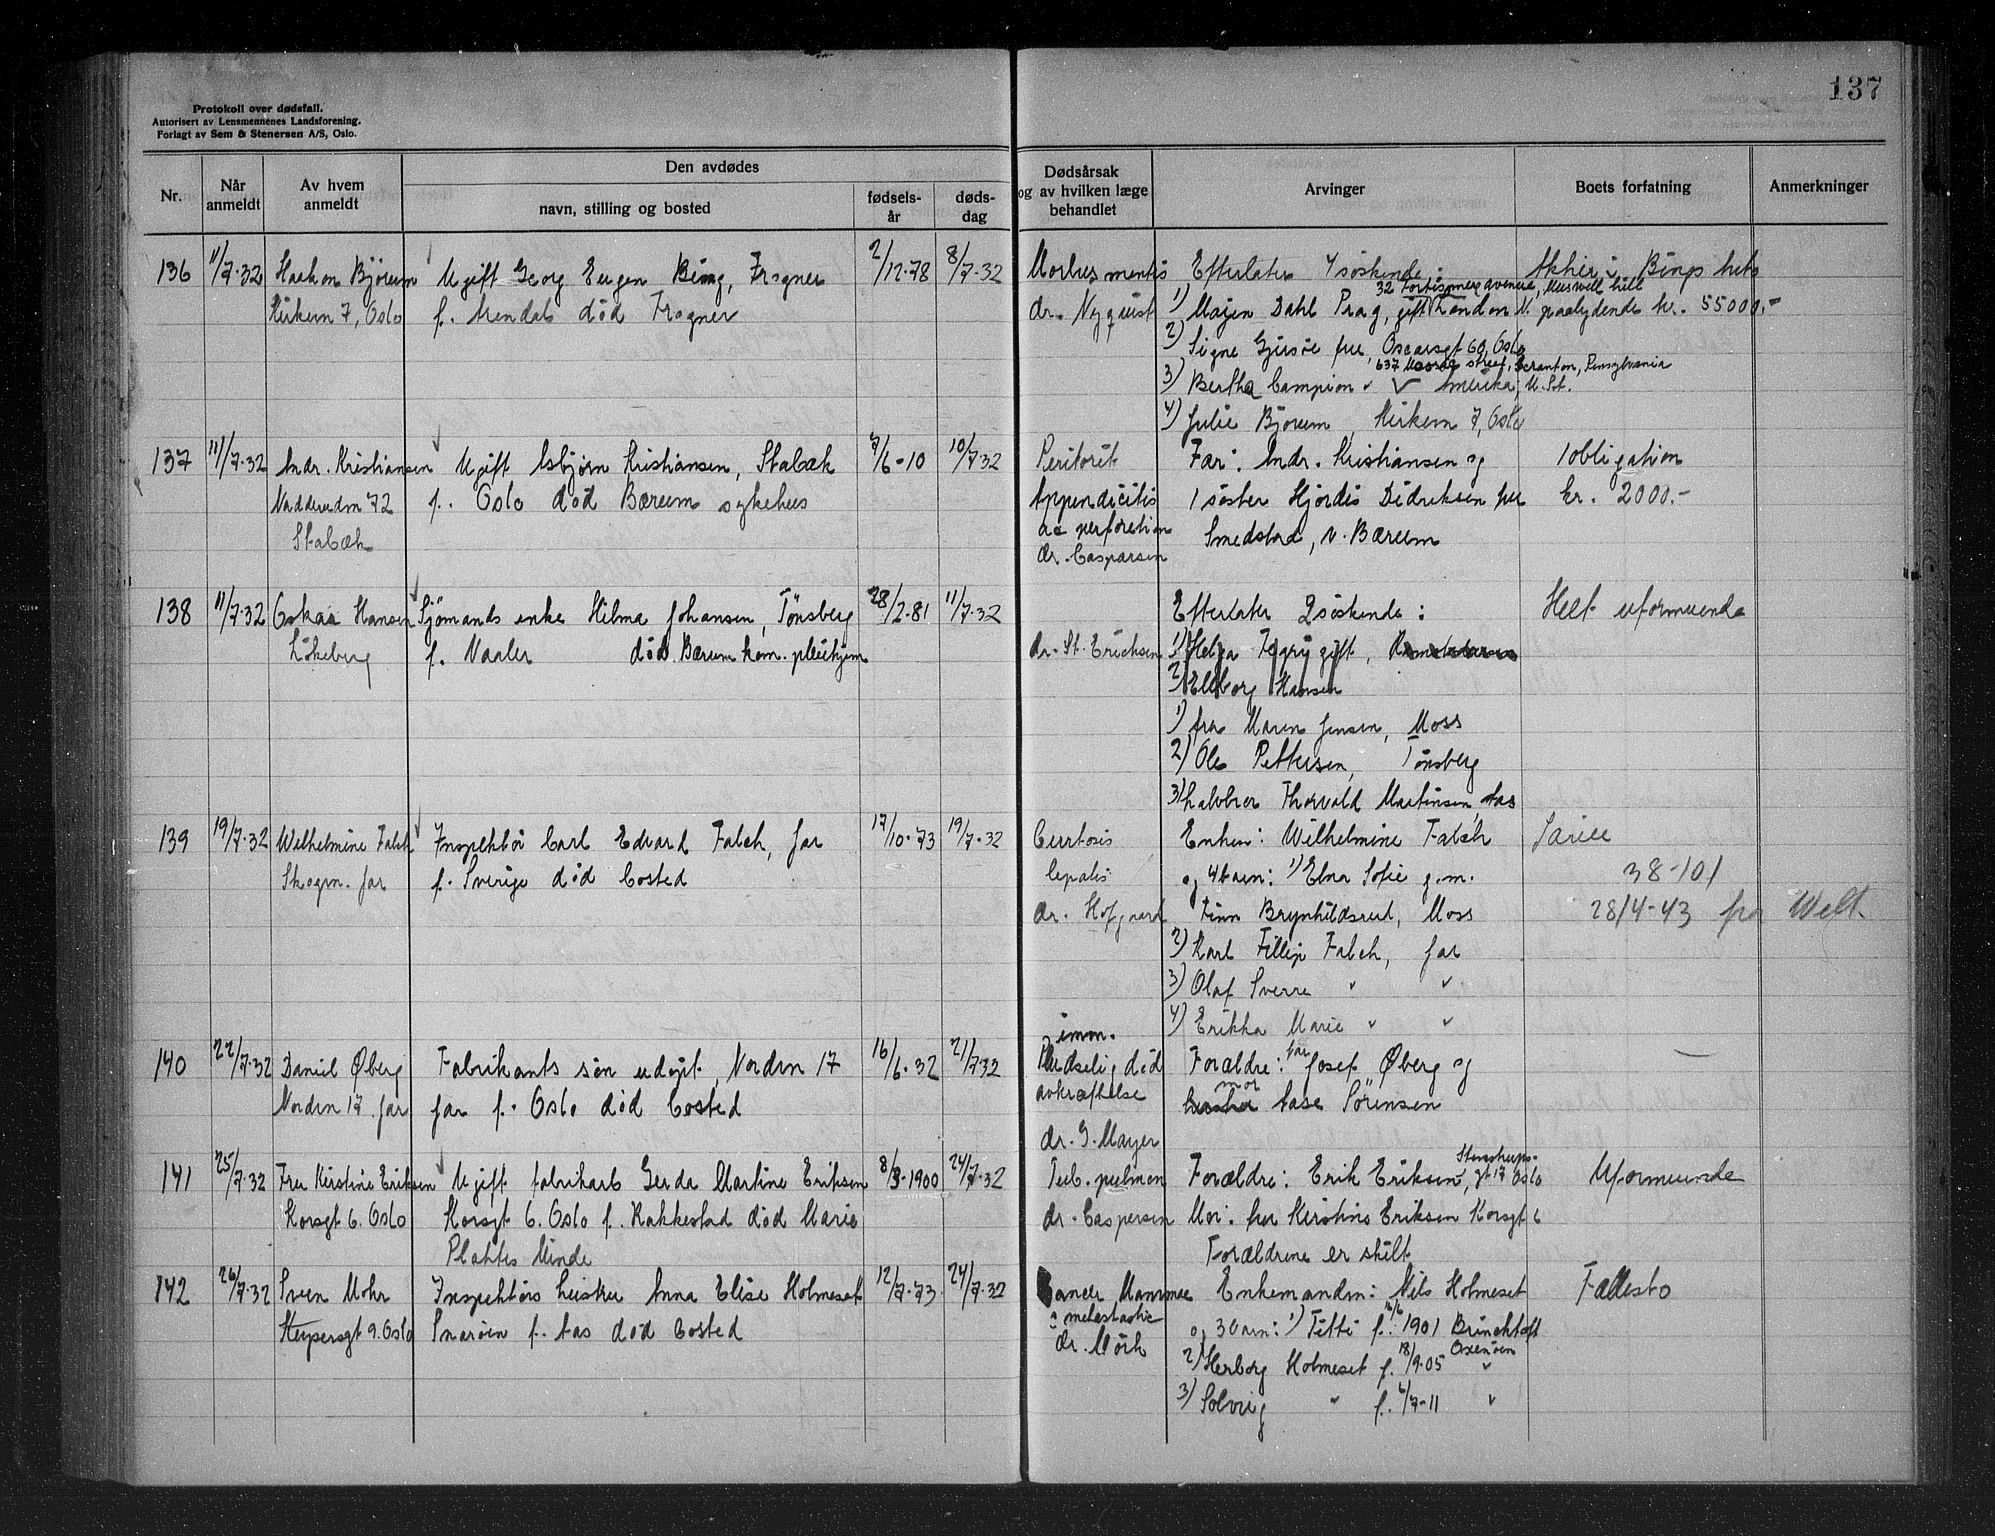 137
Protokoll over dødsfall.
Autorisert av Lensmennenes Landsforening.
Forlagt av Sem & Stenersen A/S, Oslo.
Nr. Når anmeldt Av hvem anmeldt Den avdødes
navn, stilling og bosted fødselsår dødsdag
Dødsårsak og av hvilken læge behandlet Arvinger Boets forfatning Anmerkninger
136 11/7-32 Haakon Bjørum Ugift Georg Eugen Bing, Frogner 2/12-78 8/7-32 Morbus mentis Efterlater 4 søskende: Aktier i Bings
32 Fortismere avenue, Muswell hill
Kirkevn 7, Oslo f. Arendal död Frogner dr. Nyquist 1) Majen Dahl Prag, gift London N. paalydende kr. 55000.-
2) Signe Gjersøe frue, Oscarsgt 60, Oslo
637 street, Scranton, Pensylvania
3) Bertha Campion " Amerika, U. St.
4) Julie Bjørum, Kirkevn 7, Oslo
137 11/7-32 Andr. Kristiansen Ugift Asbjørn Kristiansen, Stabæk 7/6-10 10/7-32 Peritonit Far: Andr. Kristiansen og 1 obligation
Nadderudvn 72 f. Oslo död Bærum sykehus Appendicitis 1 søster Hjördis Didriksen frue kr. 2000.-
Stabæk ac perforation Smedstad, V. Bærum
dr. Caspersen
138 11/7-32 Oskar Hansen Sjömands enke Hilma Johansen, Tönsberg 28/2-81 11/7-32 Efterlater 2 söskende: Helt uformuende
Lökeberg f. Vaaler död Bærum kom. pleiehjem dr. St. Erichsen 1) Helga gift,
2) Ellborg Hansen
1) fru Maren Jensen, Moss
2) Ole Pettersen, Tönsberg
3) halvbror Thorvald Martinsen, Aas
139 19/7-32 Wilhelmine Falch Inspektör Carl Edvard Falch, Jar 17/10-73 19/7-32 Enken: Wilhelmine Falch
Skogvn. Jar f. Sverige död bosted og 4 barn: 1) Elna Sofie g.m. 38-101
dr. Hofgaard Finn Brynhildsrud, Moss 28/4-43 fra
2) Karl Fillip Falch, Jar
3) Olaf Sverre " "
4) Erikka Marie " "
imm.
140 22/7-32 Daniel Øberg Fabrikants sön udöpt, Nordvn 17 16/6-32 21/7-32 Pludselig död Forældre: far Josef Øberg og —
Nordvn 17 Jar Jar f. Oslo död bosted avkræftelse mor Aase Sörensen
dr. G. Mayer
141 25/7-32 Fru Kirstine Eriksen Ugift fabrikarb Gerda Martine Eriksen 8/3-1900 24/7-32 Tub. pulmon Forældre: Erik Eriksen, Stenstrupsgt 17 Oslo Uformuende
Korsgt 6. Oslo Korsgt 6. Oslo f. Rakkestad död Marie dr. Caspersen Mor: fru Kirstine Eriksen Korsgt 6
Plahtes Minde Forældrene er skilt
142 26/7-32 Sven Mohr Inspektörs hustru Anna Elise Holmeset 12/7-73 24/7-32 Cancer Mammae Enkemanden: Nils Holmeset Fællesbo
Keysersgt 9. Oslo Snaröen f. Aas död bosted metastaser og 3 barn: 1) Titti f. 16/6 1901
dr. Mörk 2) Herborg Holmeset f. 18/9-05 Oxenöen "
3) Solveig " f. 6/7-11 "